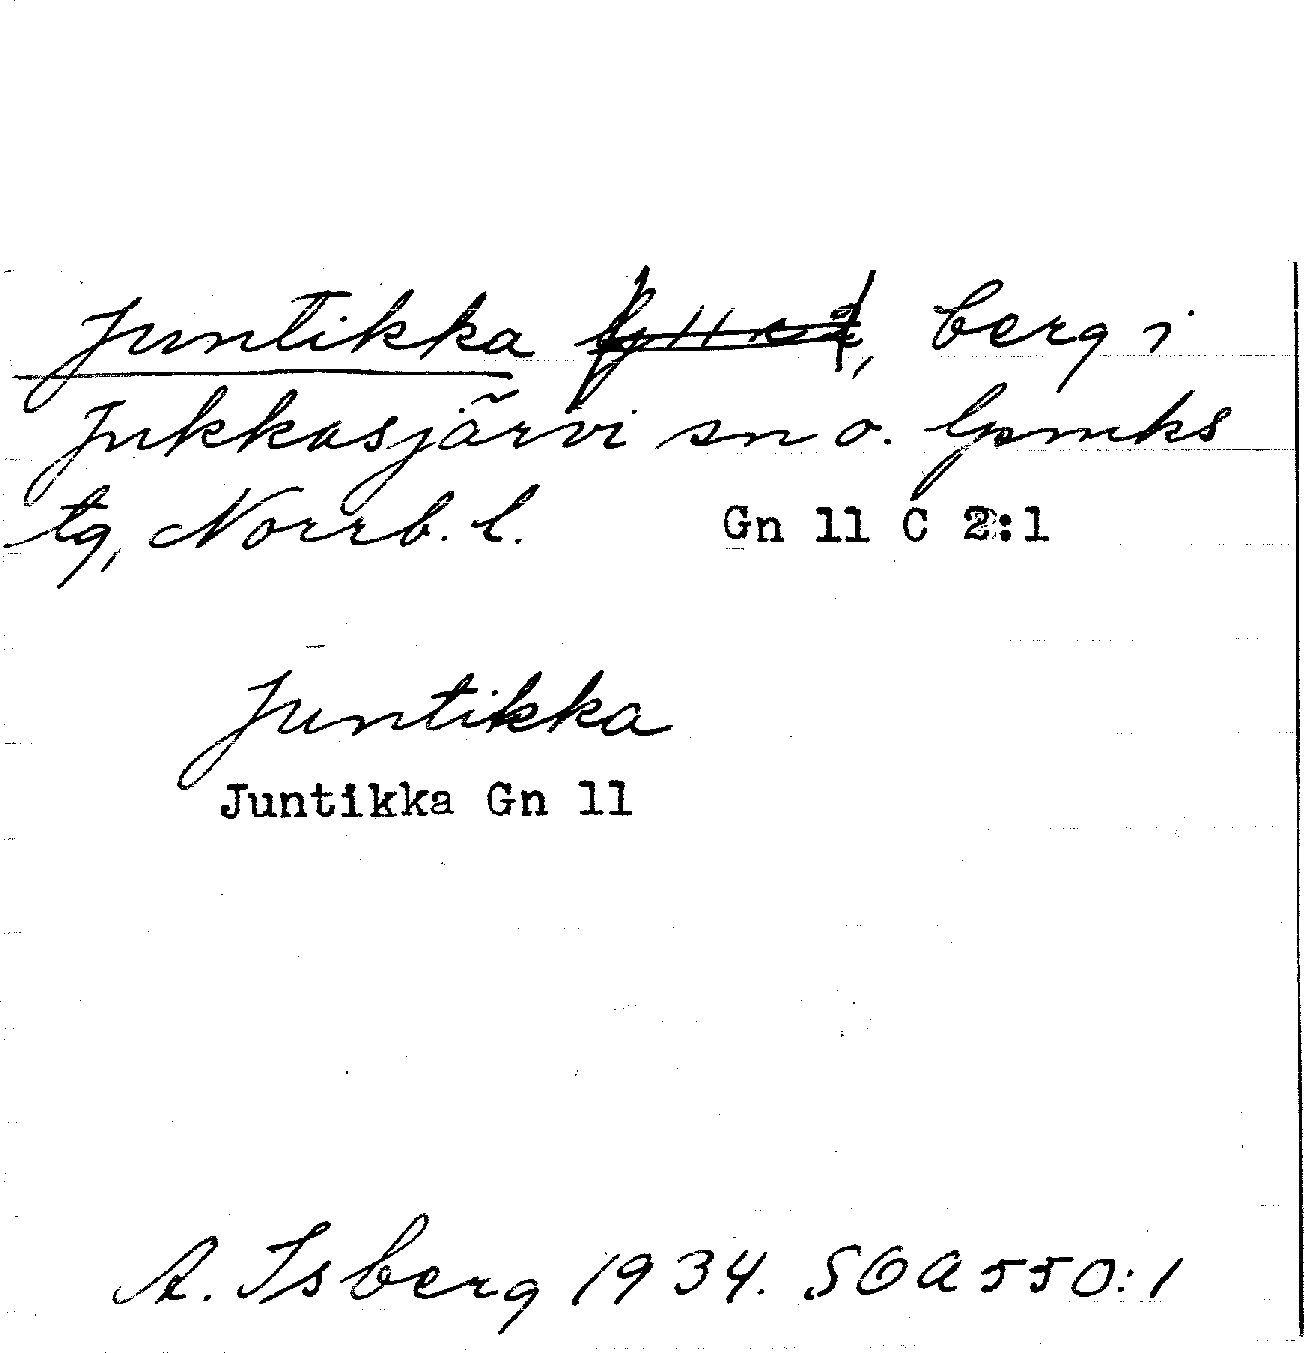 Juntikka, berg i
Jukkasjärvi sn o. lpmks
tg, Norrb. l. Gn 11 C 2:1
Juntikka
Juntikka Gn 11
A. Isberg 1934. SOA 550:1